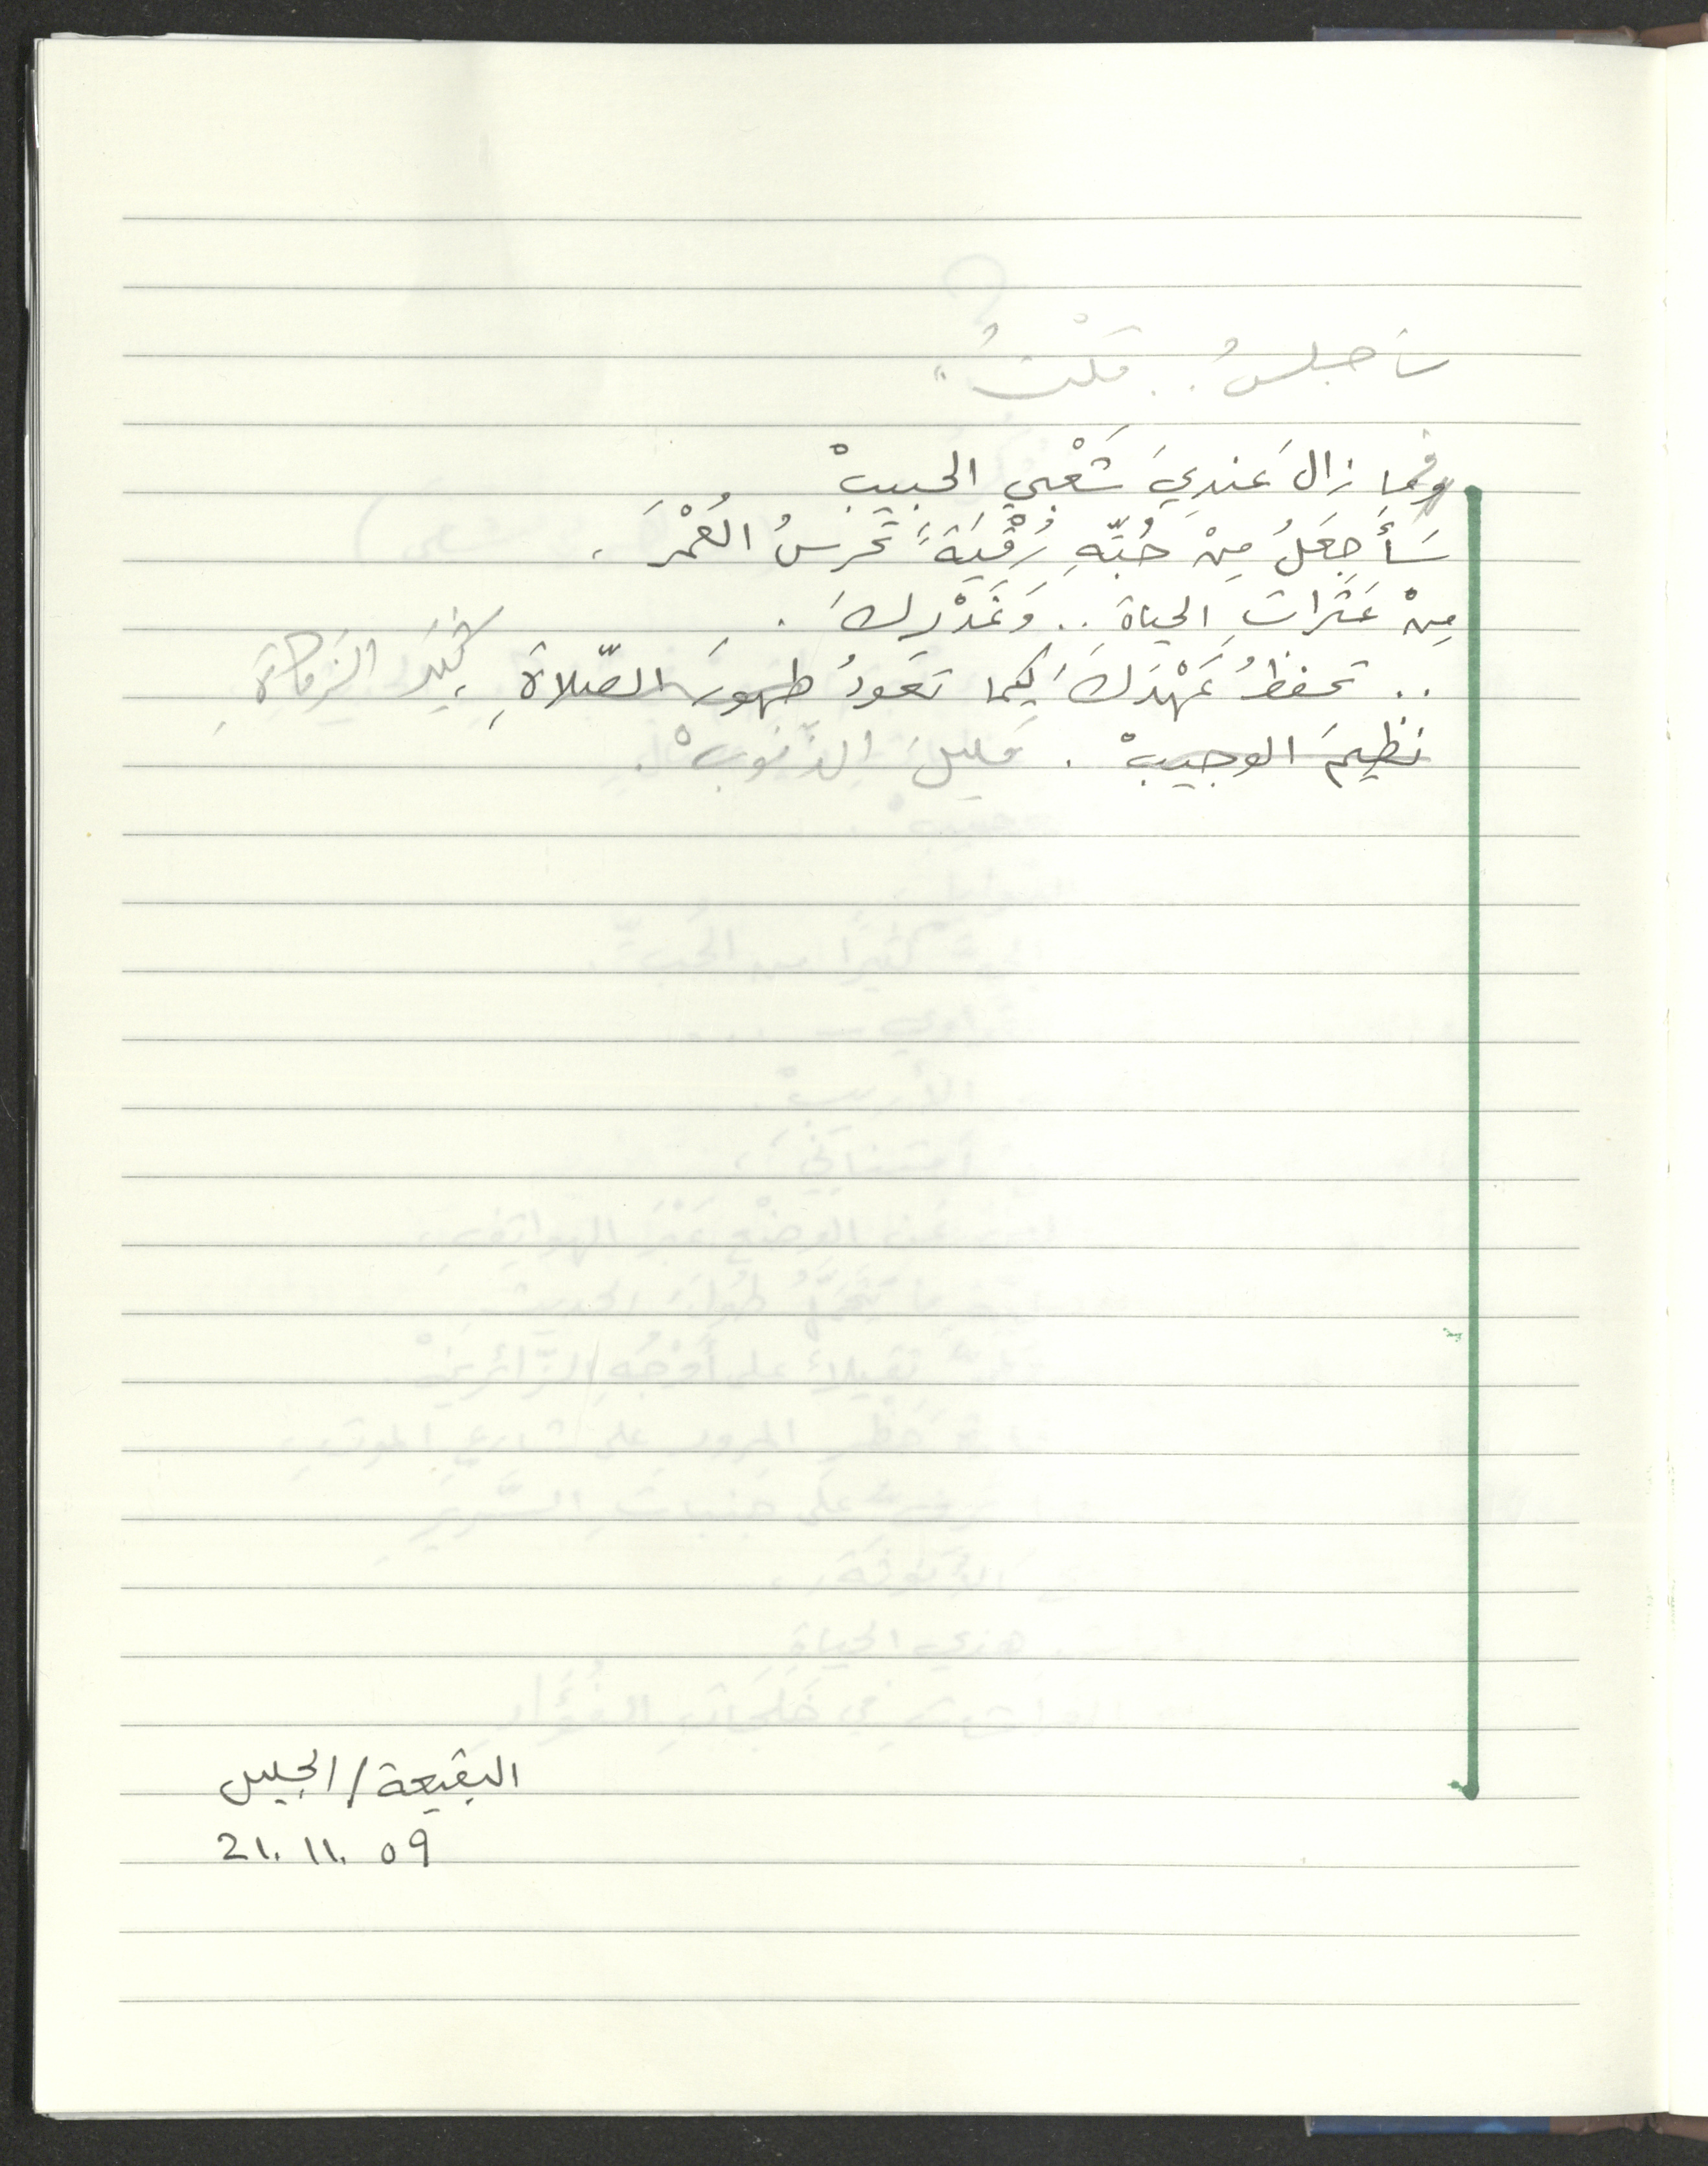 سَأجلسُ .. قلْتُ"
وفما زالَ عَندِيَ شَعْبي الحبيبْ
سَأَجعَلُ مِنْ حُبّهِ رُقْيَةً تَحرسُ العُمْرَ ،
مِنْ عَثَراتِ الحياةِ .. وَغَدْرِكَ .
.. تحفظُ عَهْدَكَ كيما تَعودُ طهورَ الصّلاةِ ، الزّكاةِ
نظيمَ الوجيبْ . قليلَ الذّنوبْ .
البقيعة / الجليل
21. 11. 09